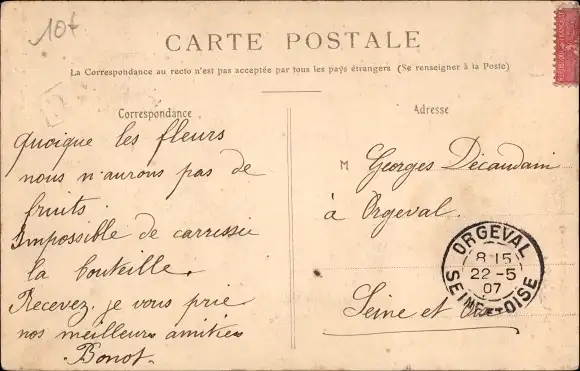 10f
CARTE POSTALE
La Correspondance au recto n'est pas acceptée par tous les pays étrangers (Se renseigner à la Poste)
Correspondance
quoique les fleurs
nous n'aurons pas de
fruits.
Impossible de carressir
la bouteille.
Recevez, je vous prie
nos meilleurs amitiés
Bonot.
Adresse
M Georges Decaudain
à Orgeval.
Seine et Oise
ORGEVAL
8 15
22-5
07
SEINE-ET-OISE